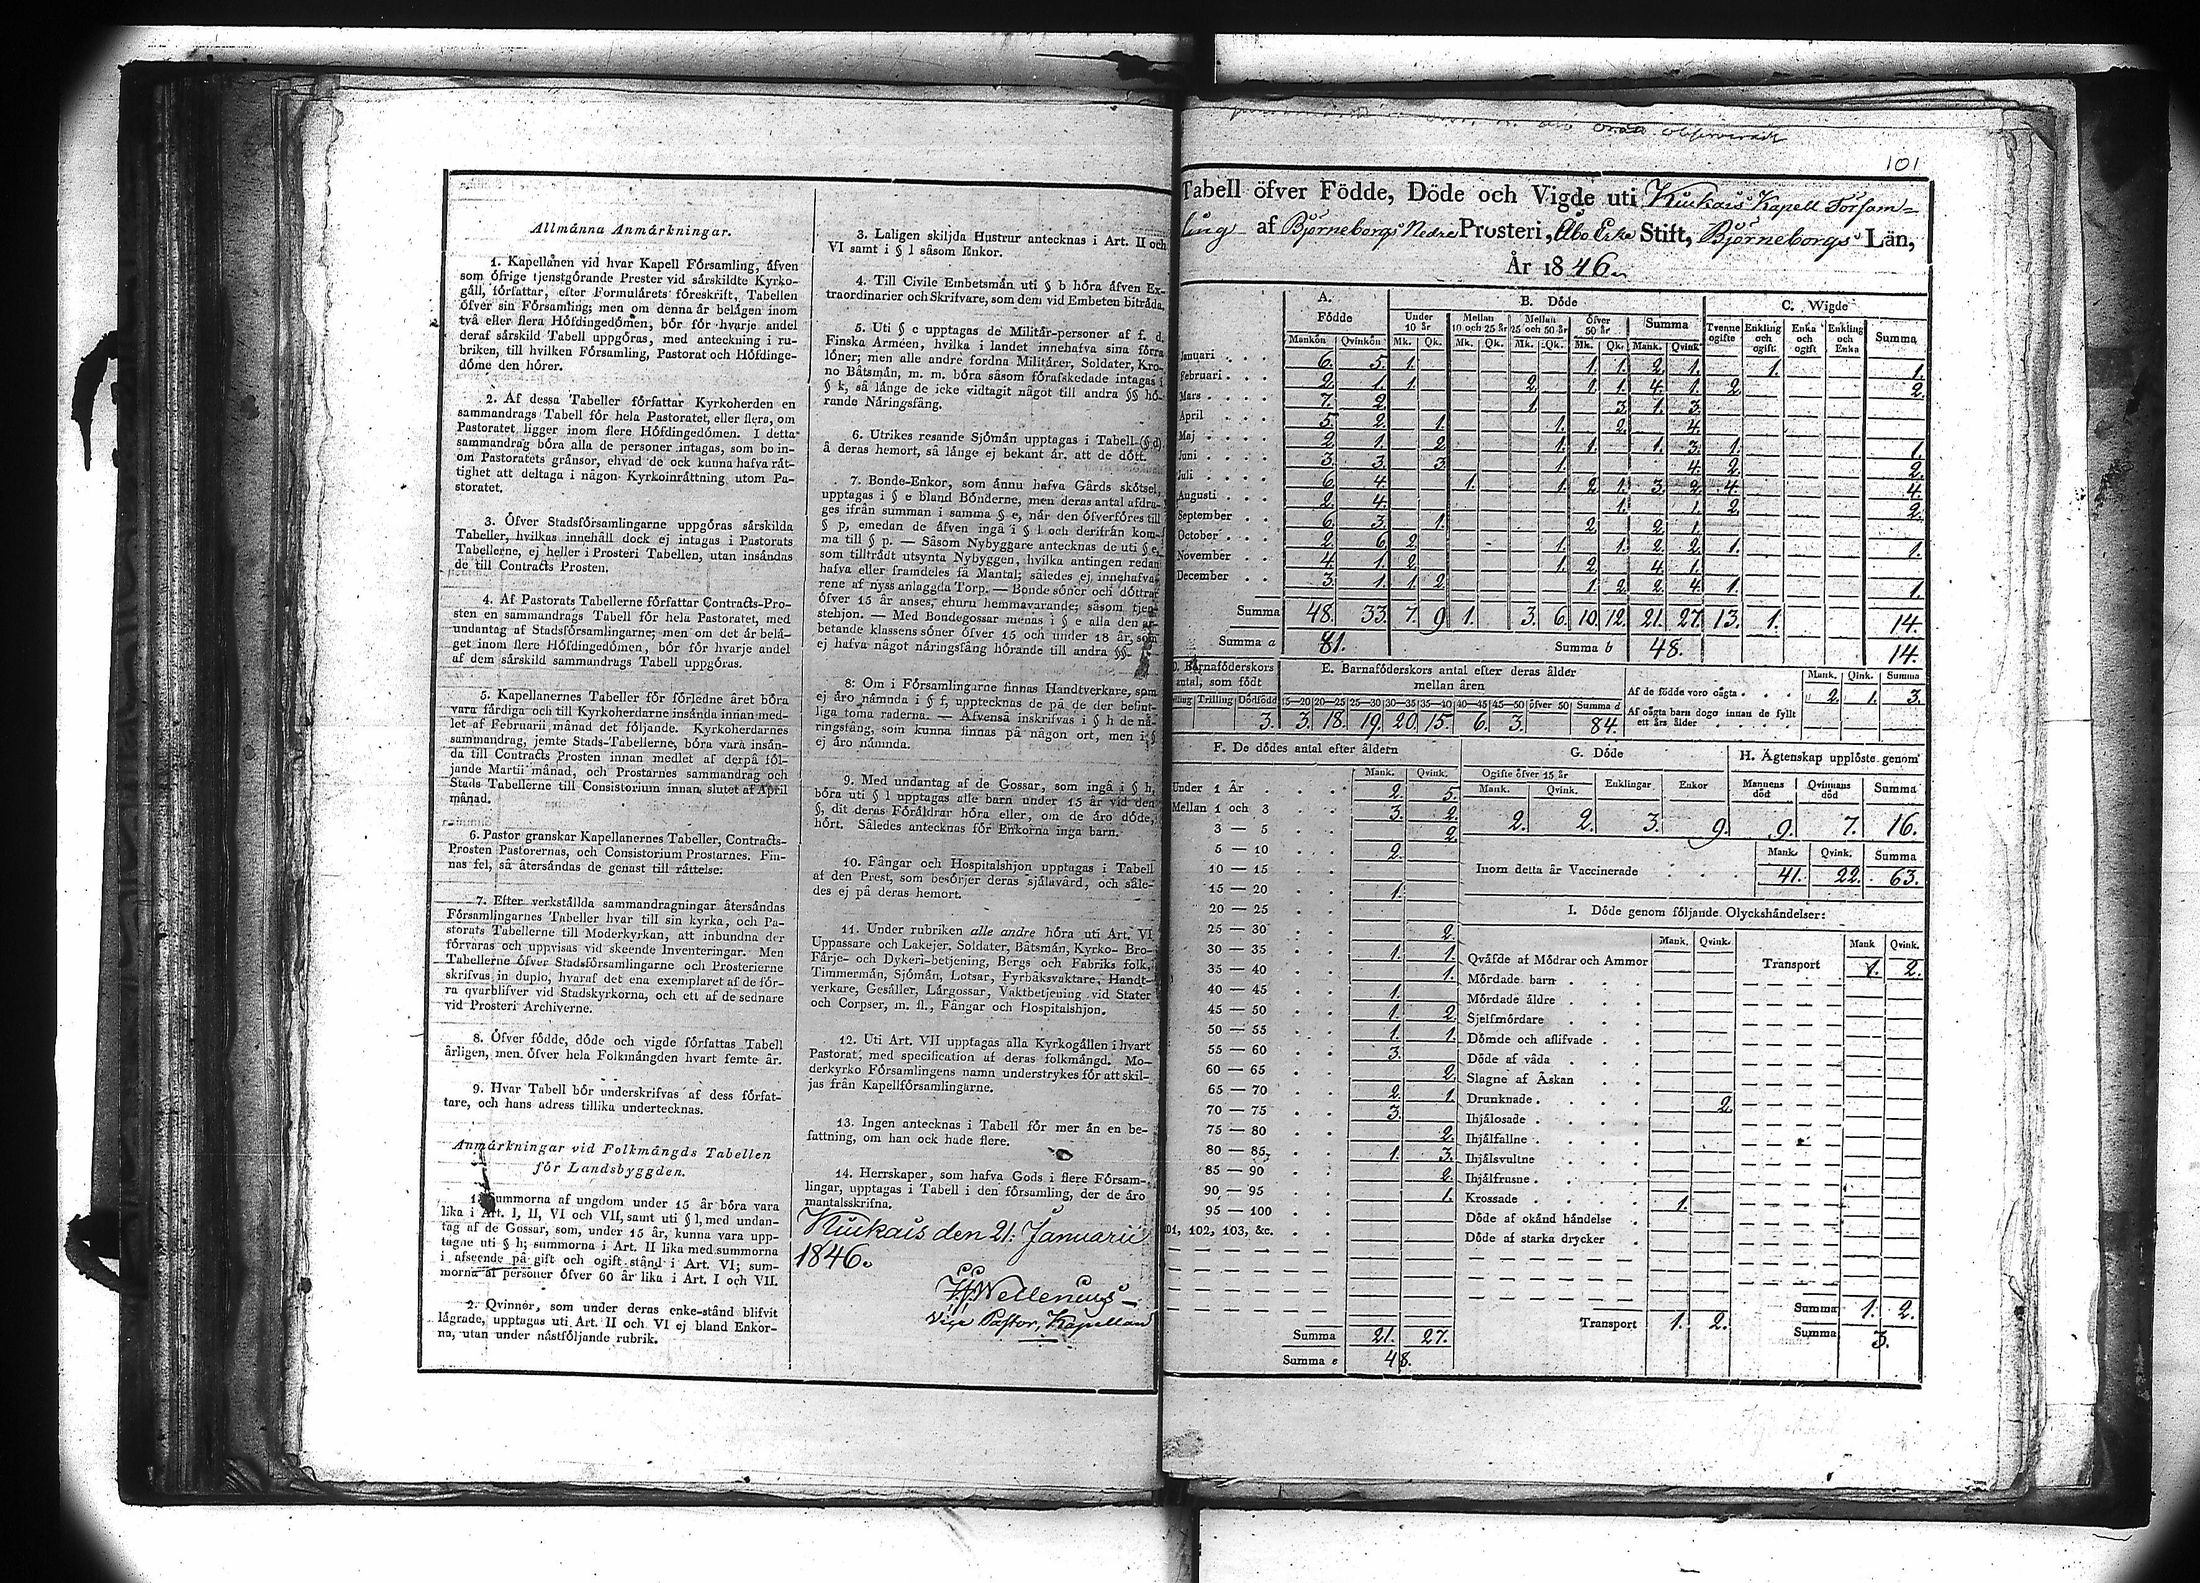 Allmänna Anmärkningar.
1. Kapellanen vid hvar Kapell Församling, äfven
som öfrige tjenstgörande Prester vid särskildte Kyrko-
gäll, författar, efter Formulärets föreskrift, Tabellen
öfver sin Församling; men om denna är belägen inom
två eller flera Höfdingedömen, bör för hvarje andel
deraf särskild Tabell uppgöras, med anteckning i ru-
briken, till hvilken Församling, Pastorat och Höfdinge-
döme den hörer.
2. Af dessa Tabeller författar Kyrkoherden en
sammandrags Tabell för hela Pastoratet, eller flera, om
Pastoratet ligger inom flere Höfdingedömen. I detta
sammandrag böra alla de personer intagas, som bo in-
om Pastoratets gränsor, ehvad de ock kunna hafva rät-
tighet att deltaga i någon Kyrkoinrättning utom Pa-
storatet.
3. Öfver Stadsförsamlingarne uppgöras särskilda
Tabeller, hvilkas innehåll dock ej intagas i Pastorats
Tabellerne, ej heller i Prosteri Tabellen, utan insändas
de till Contracts Prosten.
4. Af Pastorats Tabellerne författar Contracts-Pro-
sten en sammandrags Tabell för hela Pastoratet, med
undantag af Stadsförsamlingarne; men om det är belä-
get inom flere Höfdingedömen, bör för hvarje andel
af dem särskild sammandrags Tabell uppgöras.
5. Kapellanernes Tabeller för förledne året böra
vara färdiga och till Kyrkoherdarne insända innan med-
let af Februarii månad det följande. Kyrkoherdarnes
sammandrag, jemte Stads-Tabellerne, böra vara insän-
da till Contracts Prosten innan medlet af derpå föl-
jande Martii månad, och Prostarnes sammandrag och
Stads Tabellerne till Consistorium innan slutet af April
månad.
6. Pastor granskar Kapellanernes Tabeller, Contracts-
Prosten Pastorernas, och Consistorium Prostarnes. Fin-
nas fel, så återsändas de genast till rättelse:
7. Efter verkställda sammandragningar återsändas
Församlingarnes Tabeller hvar till sin kyrka, och Pa-
storats Tabellerne till Moderkyrkan, att inbundna der
förvaras och uppvisas vid skeende Inventeringar. Men
Tabellerne öfver Stadsförsamlingarne och Prosterierne
skrifvas in duplo, hvaraf det ena exemplaret af de för-
ra qvarblifver vid Stadskyrkorna, och ett af de sednare
vid Prosteri Archiverne.
8. Öfver födde, döde och vigde författas Tabell
årligen, men öfver hela Folkmängden hvart femte år.
9. Hvar Tabell bör underskrifvas af dess förfat-
tare, och hans adress tillika undertecknas.
Anmärkningar vid Folkmängds Tabellen
för Landsbyggden.
1. Summorna af ungdom under 15 år böra vara
lika i Art. I, II, VI och VII, samt uti § l, med undan-
tag af de Gossar, som, under 15 år, kunna vara upp-
tagne uti § h; summorna i Art. II lika med summorna
i afseende på gift och ogift stånd i Art. VI; sum-
morna af personer öfver 60 år lika i Art. I och VII.
2. Qvinnor, som under deras enke-stånd blifvit
lägrade, upptagas uti Art. II och VI ej bland Enkor-
na, utan under nästföljande rubrik.
3. Laligen skiljda Hustrur antecknas i Art. II och
VI samt i § l såsom Enkor.
4. Till Civile Embetsmän uti § b höra äfven Ex-
traordinarier och Skrifvare, som dem vid Embeten biträda.
5. Uti § c upptagas de Militär-personer af f. d.
Finska Arméen, hvilka i landet innehafva sina förra
löner; men alle andre fordna Militärer, Soldater, Kro-
no Båtsmän, m. m. böra såsom förafskedade intagas i
§ k, så länge de icke vidtagit något till andra §§ hö-
rande Näringsfång.
6. Utrikes resande Sjömän upptagas i Tabell (§ d)
å deras hemort, så länge ej bekant är, att de dött.
7. Bonde-Enkor, som ännu hafva Gårds skötsel,
upptagas i § e bland Bönderne, men deras antal afdra-
ges ifrån summan i samma § e, når den öfverföres till
§ p, emedan de äfven ingå i § l och derifrån kom-
ma till § p. — Såsom Nybyggare antecknas de uti § e,
som tillträdt utsynta Nybyggen, hvilka antingen redan
hafva eller framdeles få Mantal; således ej innehafva-
rene af nyss anlaggda Torp. — Bonde söner och döttrar
öfver 15 år anses, ehuru hemmavarande; såsom tjen-
stehjon. — Med Bondegossar menas i § e alla den ar-
betande klassens söner öfver 15 och under 18 år, som
ej hafva något näringsfång hörande till andra §§.
8: Om i Församlingarne finnas Handtverkare, som
ej äro nämnda i § f, upptecknas de på de der befint-
liga toma raderna. — Äfvensä inskrifvas i § h de nä-
ringsfång, som kunna finnas på någon ort, men i §
ej äro nämnda.
9. Med undantag af de Gossar, som ingå i § h,
böra uti § l upptagas alle barn under 15 år vid den
§, dit deras Föräldrar höra eller, om de äro döde,
hört. Således antecknas för Enkorna inga barn.
10. Fångar och Hospitalshjon upptagas i Tabell
af den Prest, som besörjer deras själavård, och såle-
des ej på deras hemort.
11. Under rubriken alle andre höra uti Art. VI
Uppassare och Lakejer, Soldater, Båtsmän, Kyrko- Bro-
Färje- och Dykeri-betjening, Bergs och Fabriks folk,
Timmermän, Sjömän, Lotsar, Fyrbåksvaktare, Handt-
verkare, Gesäller, Lärgossar, Vaktbetjening vid Stater
och Corpser, m. fl., Fångar och Hospitalshjon.
12. Uti Art. VII upptagas alla Kyrkogällen i hvart
Pastorat, med specification af deras folkmängd. Mo-
derkyrko Församlingens namn understrykes för att skil-
jas från Kapellförsamlingarne.
13. Ingen antecknas i Tabell för mer än en be-
fattning, om han ock hade flere.
14. Herrskaper, som hafva Gods i flere Försam-
lingar, upptagas i Tabell i den församling, der de äro
mantalsskrifna.
Kiukais den 21. Januarii
1846.
Wellenius
Vice Pastor, Kapellan
observerade
101
Tabell öfver Födde, Döde och Vigde uti Kiukais Kapell Församling
af Björneborgs Nedre Prosteri, Åbo Erke Stift, Björneborgs Län,
År 1846.
A. Födde B. Döde C. Wigde
Under 10 år Mellan 10 och 25 år Mellan 25 och 50 år Öfver 50 år Summa Tvenne ogifte Enkling och ogift Enka och ogift Enkling och Enka Summa
Mankön Qvinkön Mk. Qk. Mk. Qk. Mk. Qk. Mk. Qk. Mank. Qvink.
Januari 6. 5. 1. 1. 1. 2. 1. 1. 1.
Februari 2. 1. 1 2. 1. 1. 4. 1. 2. 2.
Mars 7. 2. 1. 3. 1. 3.
April 5. 2. 1. 1. 2. 4.
Maj 2. 1. 2. 1. 1. 1. 3. 1. 1.
Juni 3. 3. 3. 1. 4. 2. 2.
Juli 6. 4. 1. 1. 2. 1. 3. 2. 4. 4.
Augusti 2. 4. 1. 1. 2. 2.
September 6. 3. 1. 2. 2. 1.
October 2. 6. 2. 1. 1. 2. 2. 1. 1.
November 4. 1. 2. 1. 2. 4. 1.
December 3. 1. 1. 2. 1. 2. 2. 4. 1. 1.
Summa 48. 33. 7. 9. 1. 3. 6. 10. 12. 21. 27. 13. 1. 14.
Summa a 81. Summa b 48. 14.
D. Barnaföderskors antal, som födt
Trilling Dödfödd
3.
E. Barnaföderskors antal efter deras ålder
mellan åren
15—20 20—25 25—30 30—35 35—40 40—45 45—50 öfver 50 Summa d
3. 18. 19. 20. 15. 6. 3. 84.
Mank. Qink. Summa
Af de födde voro oägta 2. 1. 3.
Af oägta barn dogo innan de fyllt
ett års ålder
F. De dödes antal efter åldern
Mank. Qvink.
Under 1 År 2. 5.
Mellan 1 och 3 3. 2.
3 — 5 2.
5 — 10 2.
10 — 15
15 — 20 1.
20 — 25
25 — 30 2.
30 — 35 1. 1.
35 — 40 1.
40 — 45 1.
45 — 50 1. 2.
50 — 55 1. 1.
55 — 60 3.
60 — 65 2.
65 — 70 2. 1.
70 — 75 3.
75 — 80 2.
80 — 85 1. 3.
85 — 90 2.
90 — 95 1.
95 — 100
101, 102, 103, &c.
Summa 21. 27.
Summa e 48.
G. Döde
Ogifte öfver 15 år Enklingar Enkor
Mank. Qvink.
2. 2. 3. 9.
H. Ägtenskap uplöste genom
Mannens död Qvinnans död Summa
9. 7. 16.
Mank. Qvink. Summa
Inom detta år Vaccinerade 41. 22. 63.
I. Döde genom följande Olyckshändelser:
Mank. Qvink.
Qväfde af Mödrar och Ammor
Mördade barn
Mördade äldre
Sjelfmördare
Dömde och aflifvade
Döde af våda
Slagne af Åskan
Drunknade 2.
Ihjälosade
Ihjälfallne
Ihjälsvultne
Ihjälfrusne
Krossade 1.
Döde af okänd händelse
Döde af starka drycker
Transport 1. 2.
Mank Qvink.
Transport 1. 2.
Summa 1. 2.
Summa 3.